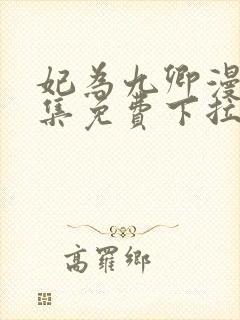 妃為九卿漫
集免費下拉
高羅鄉